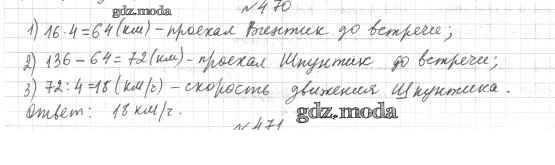 №470
gdz.moda
1) 16·4=64(км)-проехал Винтик до встречи;
2) 136-64=72(км)-проехал Шпунтик до встречи;
3) 72:4=18(км/ч)-скорость движения Шпунтика.
Ответ: 18 км/ч.
gdz.moda
№471